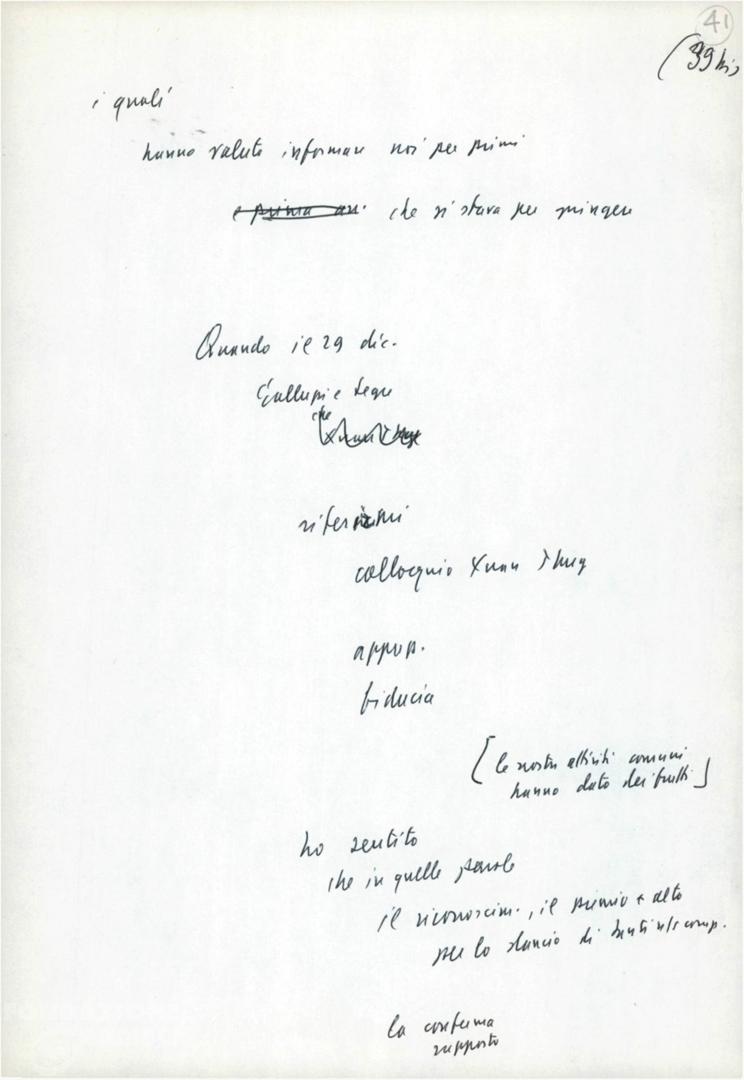 41
(39 bis
i quali
hanno voluto informare noi per primi
che si stava per giungere
Quando il 29 dic.
Galluppi e Segre
che
riferirmi
colloquio Xuan Thuy
appun.
fiducia
[le nostre attività comuni
hanno dato dei frutti]
ho sentito
che in quelle parole
il riconoscim., il premio + alto
per lo slancio di tanti n/s comp.
la conferma
rapporto